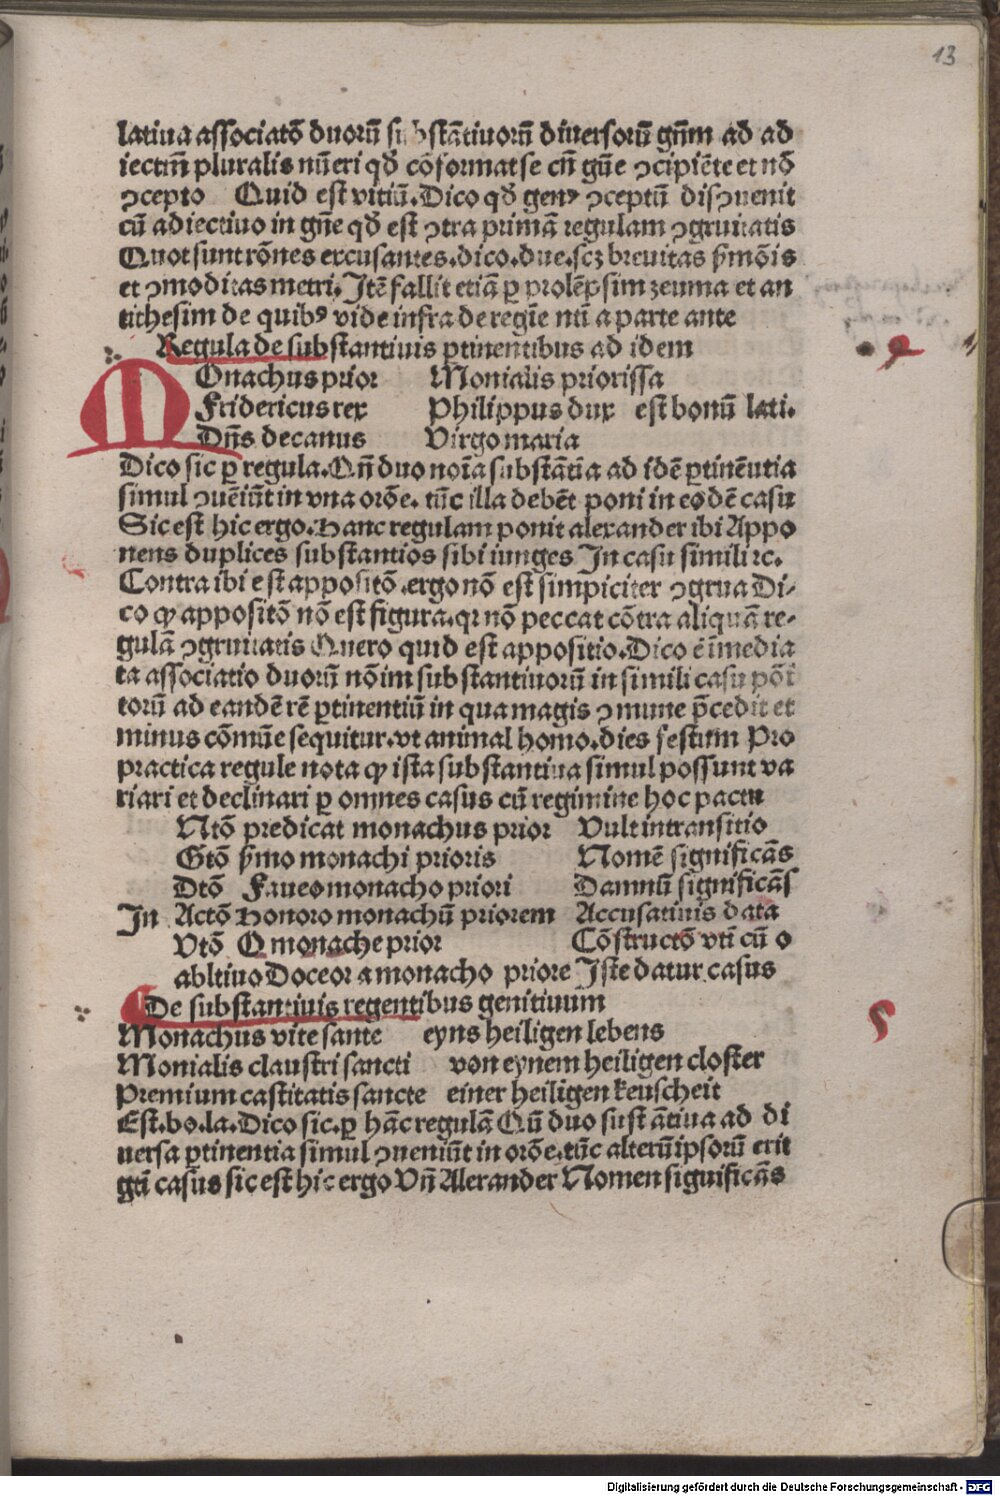 13
latiua associatō duorū substātiuorū diuersorū gn̄m ad ad
iectm̄ pluralis nūeri qd̓ cōformatse cū gn̄e ꝯcipiēte et nō
ꝯcepto Quid est vitiū. Dico qd̓ genꝰ ꝯceptū disꝯuenit
cū adiectiuo in gn̄e qd̓ est ꝯtra primā regulam ꝯgruitatis
Quot sunt rōnes excusantes. dico. due. scꝫ breuitas ẜmōis
et ꝯmoditas metri. Itē fallit etiā ꝑ prolēpsim zeuma et an
tithesim de quibꝰ vide infra de regīe nti a parte ante
Regula de substantiuis ꝑtinentibus ad idem
MOnachus prior Monialis priorissa
Fridericus rex Philippus dux est bonū lati.
Dn̄s decanus Virgo maria
Dico sic ꝑ regula. Qn̄ duo noīa substātīa ad idē ꝑtinētia
simul ꝯueniūt in vna orōe. tūc illa debēt poni in eodē casu
Sic est hic ergo. Hanc regulam ponit alexander ibi Appo
nens duplices substantios sibi iunges In casu simili ⁊c.
Contra ibi est appositō .ergo nō est simpiciter ꝯgrua Di-
co ꝙ appositō nō est figura. qꝛ nō peccat cōtra aliquā re-
gulā ꝯgruitatis Quero quid est appositio. Dico ē īmedia
ta associatio duorū nōim substantiuorū in simili casu pōi
torū ad eandē rē ꝑtinentiū in qua magis ꝯmune p̄cedit et
minus cōmūe sequitur. vt animal homo. dies festum Pro
practica regule nota ꝙ ista substantiua simul possunt va
riari et declinari ꝑ omnes casus cū regimine hoc pactu
Ntō predicat monachus prior Vult intransitio
Gtō ẜmo monachi prioris Nomē significās
Dtō Faueo monacho priori Damnū significās
In Actō Honoro monachū priorem Accusatiuis data
Vtō O monache prior Cōstructō vti cū o
abltiuo Doceor a monacho priore Iste datur casus
De substantiuis regentibus genitiuum
Monachus vite sante eyns heiligen lebens
Monialis claustri sancti von eynem heiligen closter
Premium castitatis sancte einer heiligen keuscheit
Est. bo. la. Dico sic. ꝑ hāc regulā Qn̄ duo sust ātiua ad di
uersa ꝑtinentia simul ꝯueniūt in orōe. tūc alterū ipsorū erit
gti casus sic est hic ergo Vn̄ Alexander Nomen significās
Digitalisierung gefördert durch die Deutsche Forschungsgemeinschaft - DFG